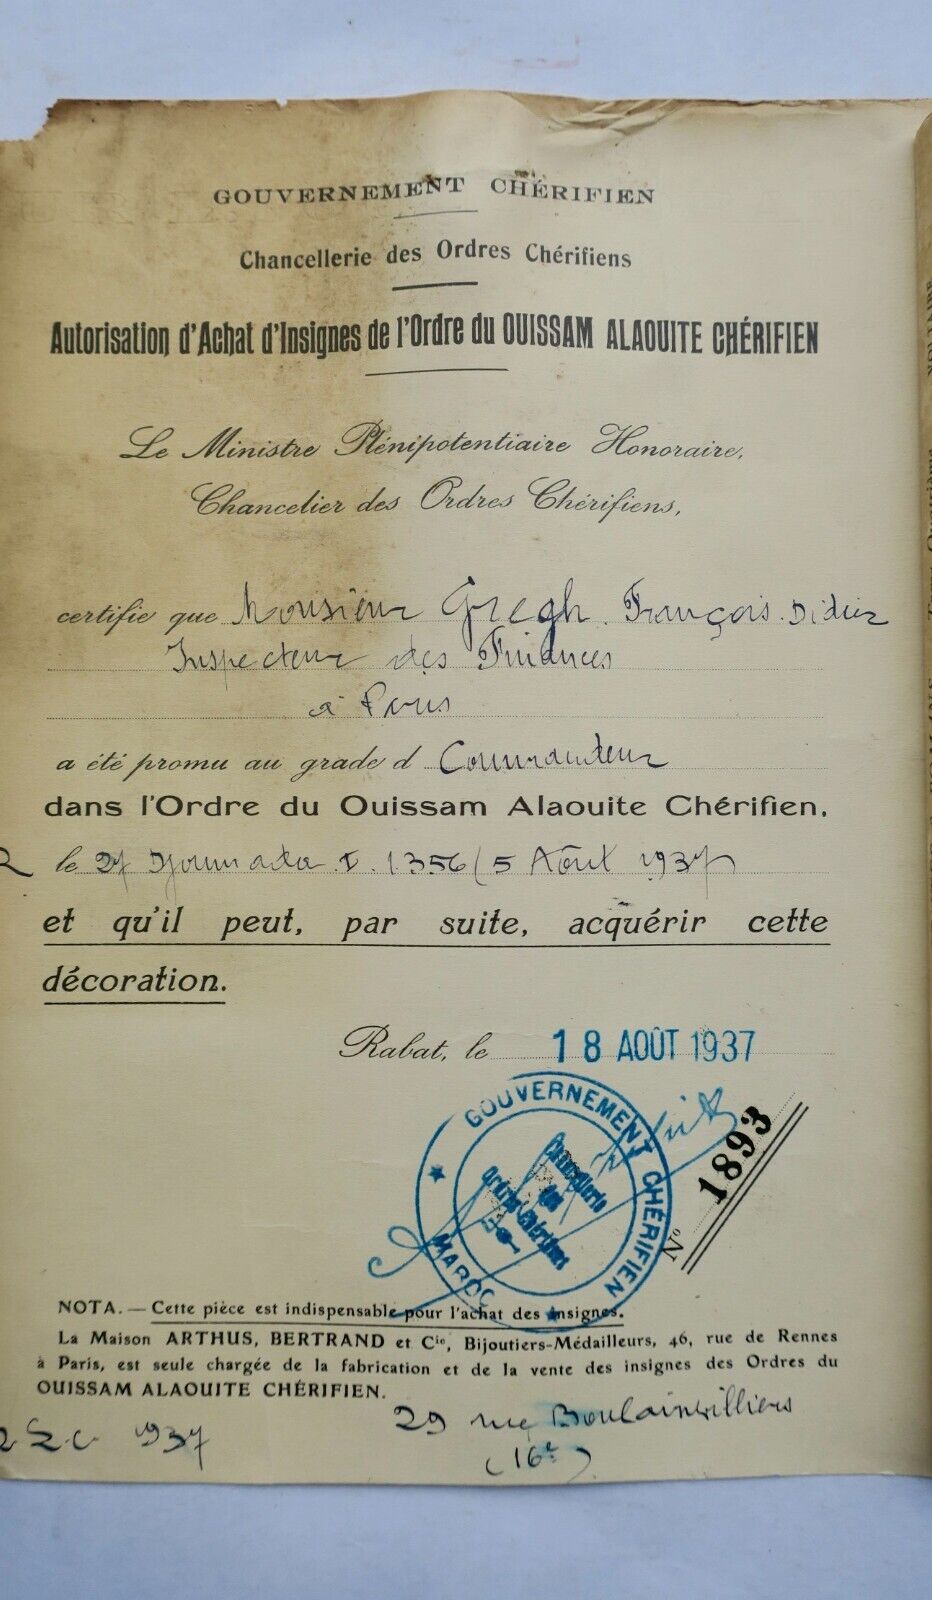 GOUVERNEMENT CHÉRIFIEN
Chancellerie des Ordres Chérifiens
Autorisation d'Achat d'Insignes de l'Ordre du OUISSAM ALAOUITE CHÉRIFIEN
Le Ministre Plénipotentiaire Honoraire,
Chancelier des Ordres Chérifiens,
certifie que Monsieur Gregh. François. Didier
Inspecteur des Finances
à Paris
a été promu au grade d Commandeur
dans l'Ordre du Ouissam Alaouite Chérifien,
le 27 Djoumada I. 1356 (5 Août 1937)
et qu'il peut, par suite, acquérir cette
décoration.
Rabat, le 18 AOÛT 1937
GOUVERNEMENT CHÉRIFIEN
MAROC
Chancellerie
des
Ordres Chérifiens
N° 1893
NOTA. — Cette pièce est indispensable pour l'achat des insignes.
La Maison ARTHUS, BERTRAND et Cie, Bijoutiers-Médailleurs, 46, rue de Rennes
à Paris, est seule chargée de la fabrication et de la vente des insignes des Ordres du
OUISSAM ALAOUITE CHÉRIFIEN.
29 rue Boulainvilliers
(16e)
1937